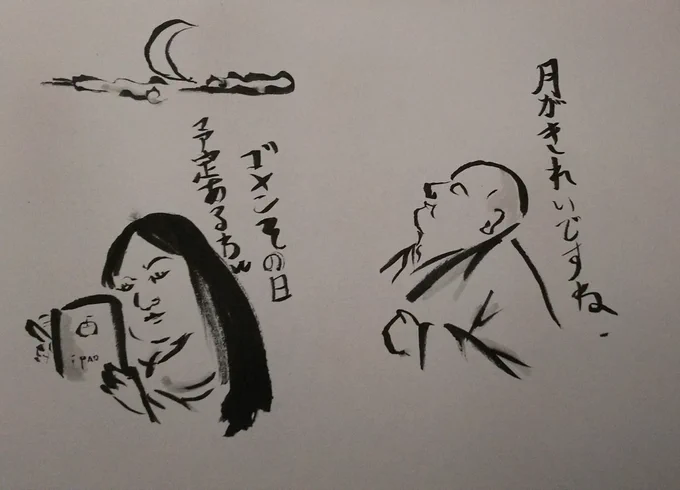 月がきれいですね.
ゴメンその日
予定あるわw
iPAD